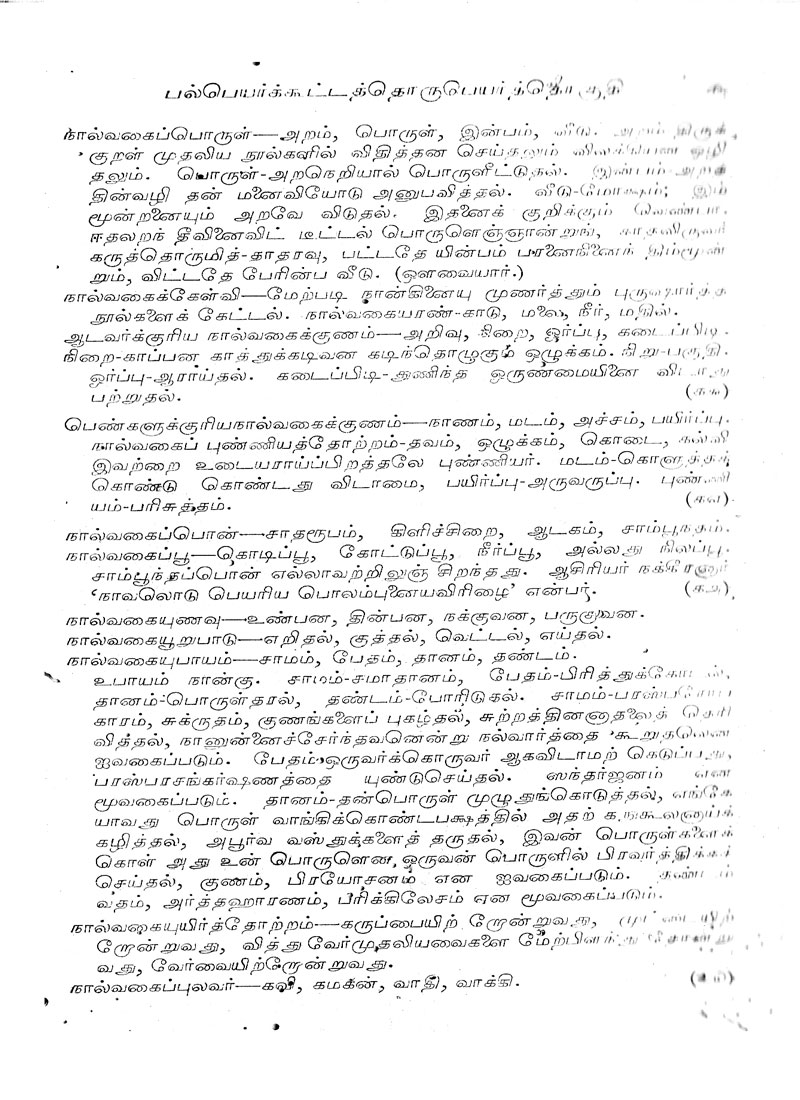 பல்பெயர்க்கூட்டத்தொருபெயர்த்தொகுதி
நால்வகைப்பொருள்—அறம், பொருள், இன்பம், வீடு. அறம்
குறள் முதலிய நூல்களில் விதித்தன செய்தலும் விலக்கியன ஒழி
தலும். பொருள்-அறநெறியால் பொருளீட்டுதல். இன்பம்-அறத்
தின்வழி தன் மனைவியோடு அனுபவித்தல். வீடு-மோக்ஷம்; இம்
மூன்றனையும் அறவே விடுதல். இதனைக் குறிக்கும் வெண்பா.
ஈதலறந் தீவினைவிட் டீட்டல் பொருளெஞ்ஞான்றுங், காதலிருவர்
கருத்தொருமித்-தாதரவு, பட்டதே யின்பம் பரனைநினைந் திம்மூன்
றும், விட்டதே பேரின்ப வீடு. (ஔவையார்.)
நால்வகைக்கேள்வி—மேற்படி நான்கினையு முணர்த்தும் புருஷார்த்த
நூல்களைக் கேட்டல். நால்வகையரண்-காடு, மலை, நீர், மதில்.
ஆடவர்க்குரிய நால்வகைக்குணம்—அறிவு, நிறை, ஓர்ப்பு, கடைப்பிடி.
நிறை-காப்பன காத்துக்கடிவன கடிந்தொழுகும் ஒழுக்கம்.
ஓர்ப்பு-ஆராய்தல். கடைப்பிடி-துணிந்த ஒருண்மையினை விடாது
பற்றுதல்.
பெண்களுக்குரியநால்வகைக்குணம்—நாணம், மடம், அச்சம், பயிர்ப்பு.
நால்வகைப் புண்ணியத்தோற்றம்-தவம், ஒழுக்கம், கொடை, கல்வி
இவற்றை உடையராய்ப்பிறத்தலே புண்ணியர். மடம்-கொளுத்தக்
கொண்டு கொண்டது விடாமை, பயிர்ப்பு-அருவருப்பு. புண்ணி
யம்-பரிசுத்தம்.
நால்வகைப்பொன்—சாதரூபம், கிளிச்சிறை, ஆடகம், சாம்பூநதம்.
நால்வகைப்பூ—கொடிப்பூ, கோட்டுப்பூ, நீர்ப்பூ, அல்லது நிலப்பூ.
சாம்பூநதப்பொன் எல்லாவற்றிலுஞ் சிறந்தது. ஆசிரியர் நக்கீரனார்
‘நாவலொடு பெயரிய பொலம்புனையவிரிழை’ என்பர்.
நால்வகையுணவு—உண்பன, தின்பன, நக்குவன, பருகுவன.
நால்வகையூறுபாடு—எறிதல், குத்தல், வெட்டல், எய்தல்.
நால்வகையுபாயம்—சாமம், பேதம், தானம், தண்டம்.
உபாயம் நான்கு. சாமம்-சமாதானம், பேதம்-பிரித்துக்கோடல்,
தானம்-பொருள்தரல், தண்டம்-போரிடுதல். சாமம்-பரஸ்பரோப
காரம், சுக்ருதம், குணங்களைப் புகழ்தல், சுற்றத்தினனாதலைத் தெரி
வித்தல், நானுன்னைச்சேர்ந்தவனென்று நல்வார்த்தை கூறுதலென
ஐவகைப்படும். பேதம்-ஒருவர்க்கொருவர் ஆகவிடாமற் கெடுப்பது,
பரஸ்பரசங்கர்ஷணத்தை யுண்டுசெய்தல். ஸந்தர்ஜனம் என
மூவகைப்படும். தானம்-தன்பொருள் முழுதுங்கொடுத்தல், எங்கே
யாவது பொருள் வாங்கிக்கொண்டபக்ஷத்தில் அதற்
கழித்தல், அபூர்வ வஸ்துக்களைத் தருதல், இவன் பொருள்களைக்
கொள் அது உன் பொருளென ஒருவன் பொருளில் பிரவர்த்திக்கச்
செய்தல், குணம், பிரயோசனம் என ஐவகைப்படும். தண்டம்
வதம், அர்த்தஹாரணம், பரிக்கிலேசம் என மூவகைப்படும்.
நால்வகையுயிர்த்தோற்றம்—கருப்பையிற் றோன்றுவது, முட்டையிற்
றோன்றுவது, வித்து வேர்முதலியவைகளை மேற்பிளந்து தோன்று
வது, வேர்வையிற்றோன்றுவது.
நால்வகைப்புலவர்—கவி, கமகன், வாதி, வாக்கி.